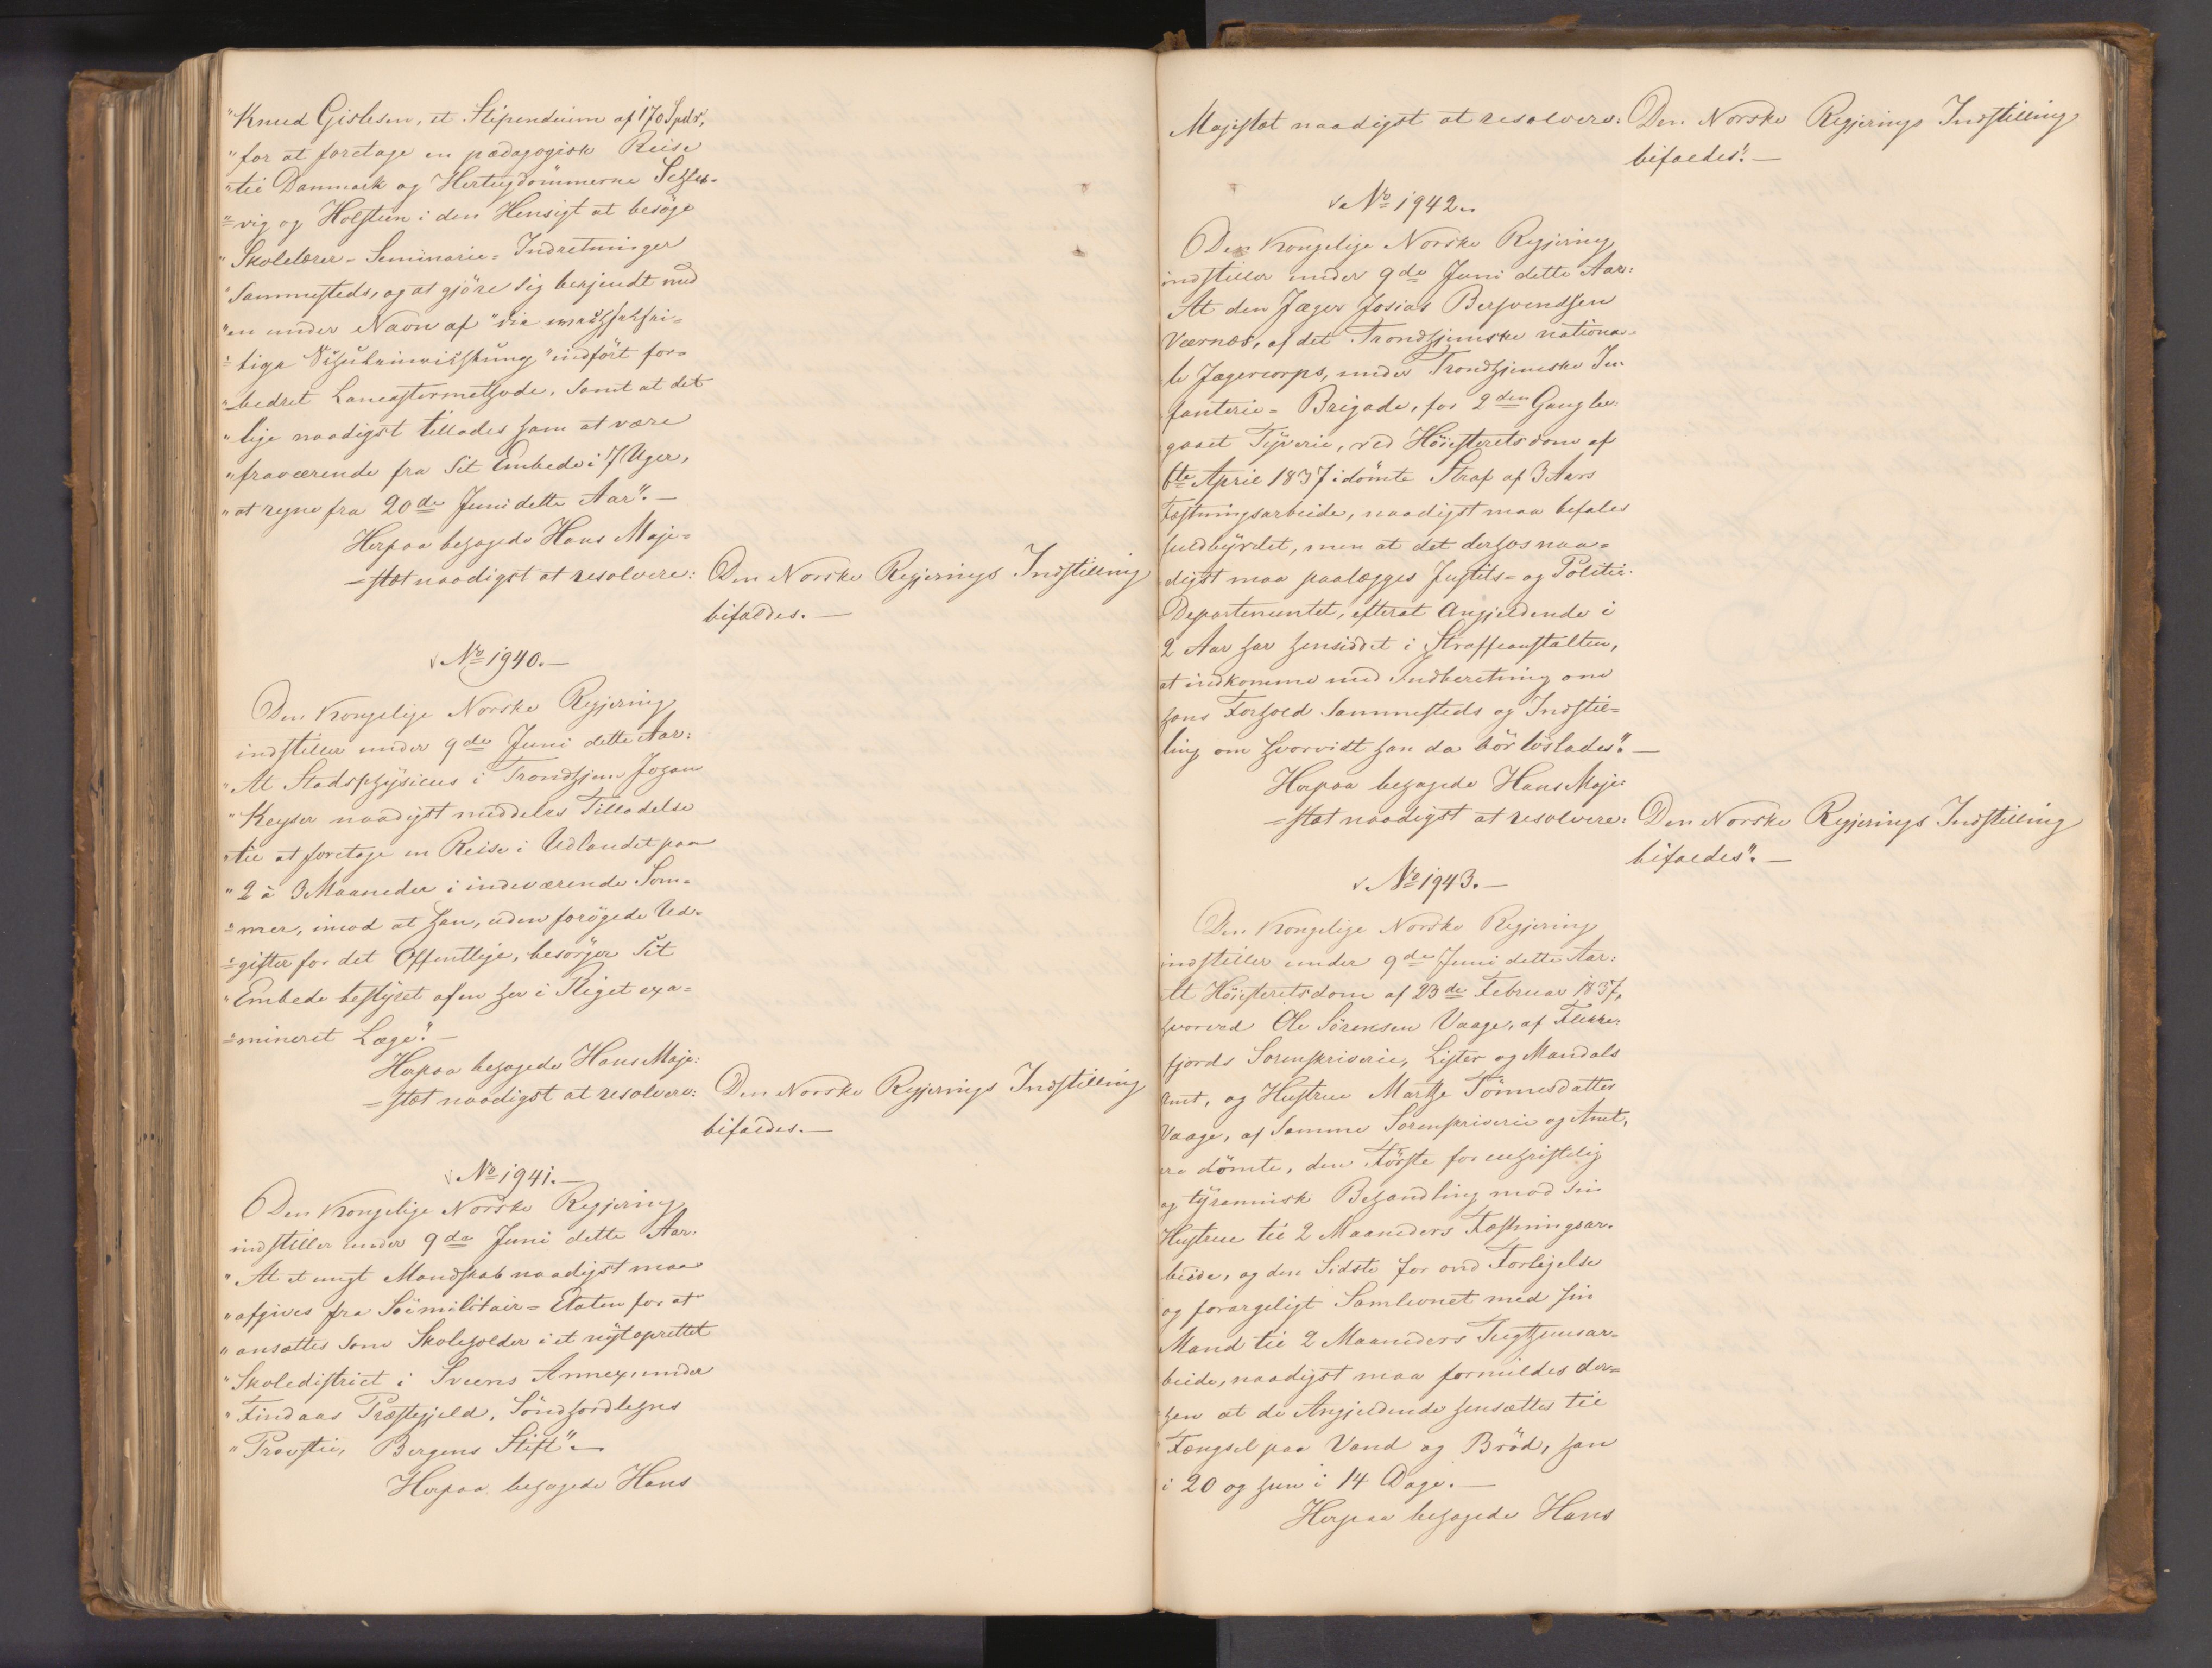 "Knud Gislesen, et Stipendium af 170 Spdlr,
"for at foretage en pædagogisk Reise
"til Danmark og Hertugdömmerne Schles-
"=vig og Holsteen i den Hensigt at besöge
"Skolelærer-Seminarie-Indretninger
"Sammesteds, og at gjöre sig bekjendt med
"en under Navn af "die wechselsei-
"=tige Schuleinrichtung" indfört for-
"=bedret Lancastermethode, samt at det
"lige naadigst tillades ham at være
"fraværende fra sit Embede i 7 Uger,
"at regne fra 20de Juni dette Aar". —
Herpaa behagede Hans Maje=
=stæt naadigst at resolvere: Den Norske Regjerings Indstilling
bifaldes. —
No 1940. —
Den Kongelige Norske Regjering
indstiller under 9de Juni dette Aar:
"At Stadsphysicus i Trondhjem Johan
"Keyser naadigst meddeles Tilladelse
"til at foretage en Reise i Udlandet paa
"2 à 3 Maaneder i indeværende Som-
"=mer, imod at han, uden forögede Ud-
"=gifter for det Offentlige, besörger sit
"Embede bestyret af en her i Riget exa=
"=mineret Læge". —
Herpaa behagede Hans Maje=
=stæt naadigst at resolvere: Den Norske Regjerings Indstilling
bifaldes. —
No 1941. —
Den Kongelige Norske Regjering
indstiller under 9de Juni dette Aar.
"At et ungt Mandskab naadigst maa
"afgives fra Söemilitair=Etaten for at
"ansættes som Skoleholder i et nyt oprettet
"Skoledistrict i Sveens Annex, under
"Findaas Præstegjeld, Söndhordlehns
"Provsti, Bergens Stift". —
Herpaa behagede Hans
Majestæt naadigst at resolvere: Den Norske Regjerings Indstilling
bifaldes". —
No 1942.
Den Kongelige Norske Regjering
indstiller under 9de Juni dette Aar:
At den Jæger Josias Bersvendsen
Værnæs, af det Trondhjemske nationa-
le Jægercorps, under Trondhjemske In-
fanterie=Brigade, for 2den Gang be-
gaaet Tyverie, ved Höiesteretsdom af
6te April 1837 idömte Straf af 3 Aars
Fæstningsarbeide, naadigst maa befales
fuldbyrdet, men at det derhos naa=
digst maa paalægges Justits- og Politie-
Departementet, efterat Angjeldende i
2 Aar har hensiddet i Straffeanstalten,
at indkomme med Indberetning om
hans Forhold sammesteds og Indstil=
ling om hvorvidt han da bör löslades". —
Herpaa behagede Hans Maje=
=stæt naadigst at resolvere: Den Norske Regjerings Indstilling
bifaldes". —
No 1943. —
Den Kongelige Norske Regjering
indstiller under 9de Juni dette Aar:
At Höiesteretsdom af 23de Februar 1837,
hvorved Ole Sörensen Vaage, af Flekke-
fjords Sorenskriverie, Lister og Mandals
Amt, og Hustrue Marthe Tönnesdatter
Vaage, af samme Sorenskriverie og Amt,
ere dömte, den Förste for uchristelig
og tyrannisk Behandling mod sin
Hustrue til 2 Maaneders Fæstningsar-
beide, og den Sidste for ond Forligelse
og forargeligt Samlevnet med sin
Mand til 2 Maaneders Tugthuusar-
beide, naadigst maa formildes der=
hen at de Angjeldende hensættes til
Fængsel paa Vand og Bröd, han
i 20 og hun i 14 Dage. —
Herpaa behagede Hans